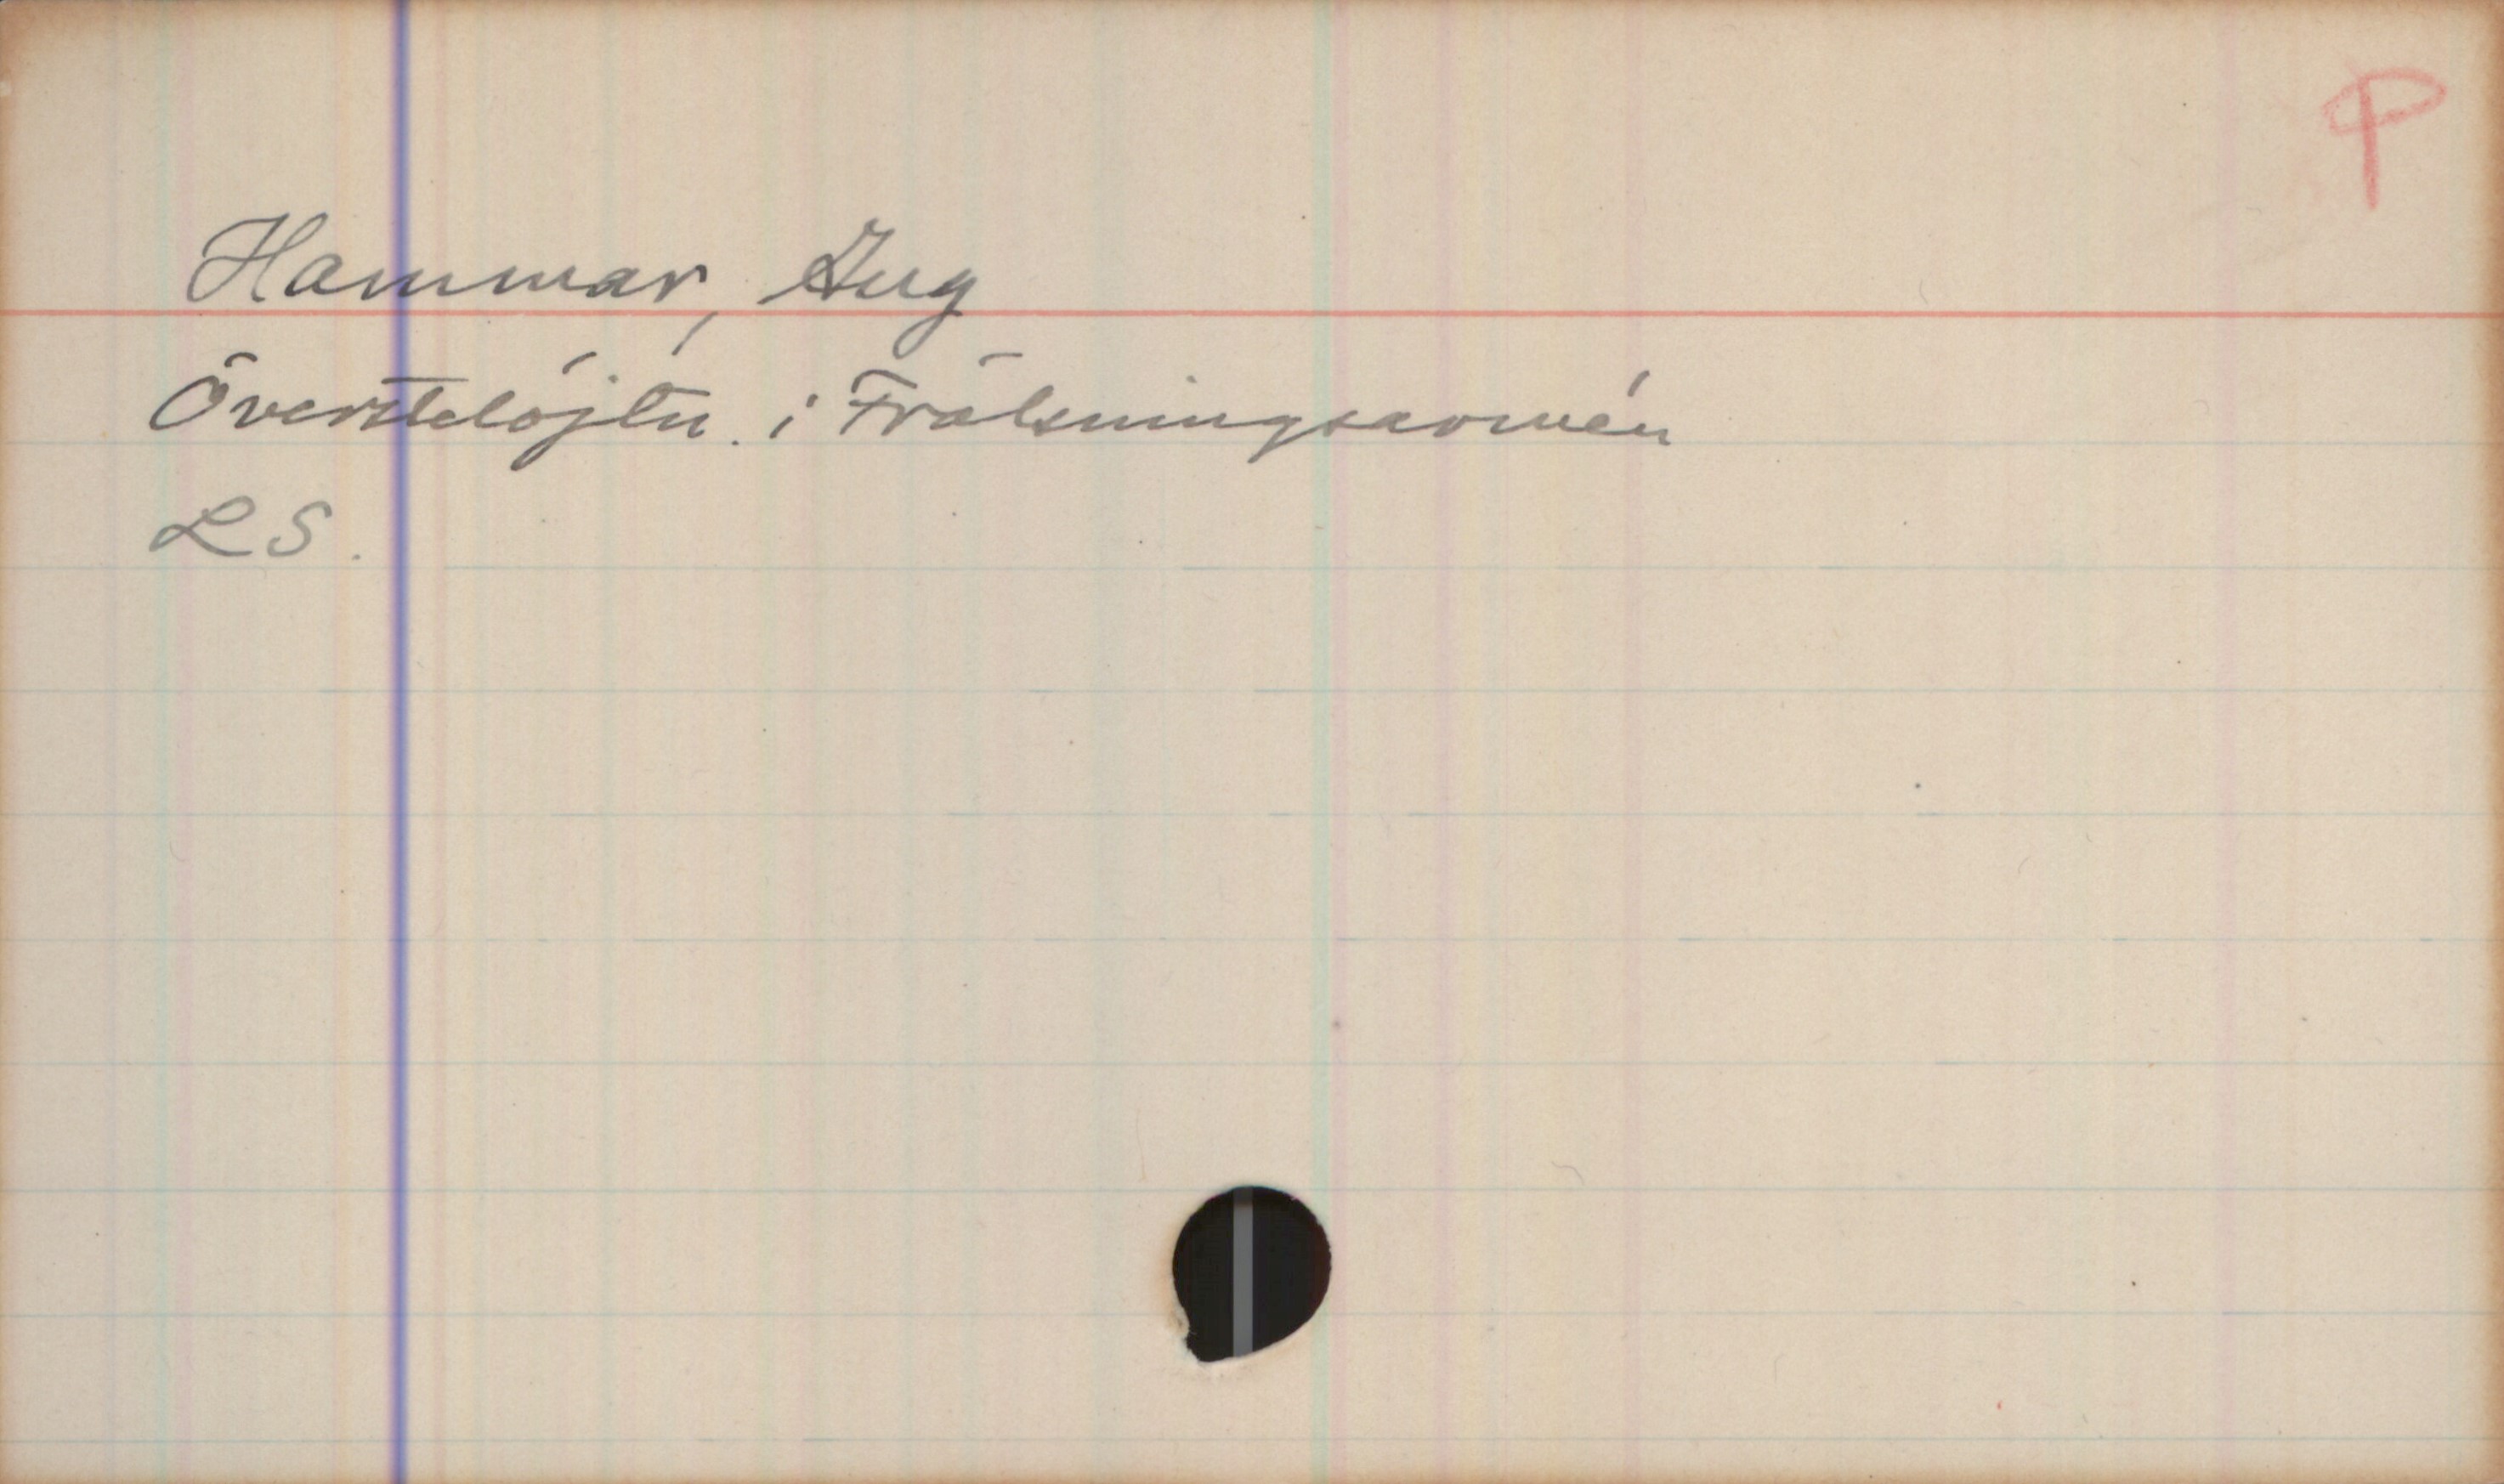 P
Hammar, Aug
Överstelöjtn. i Frälsningsarmén
LS.